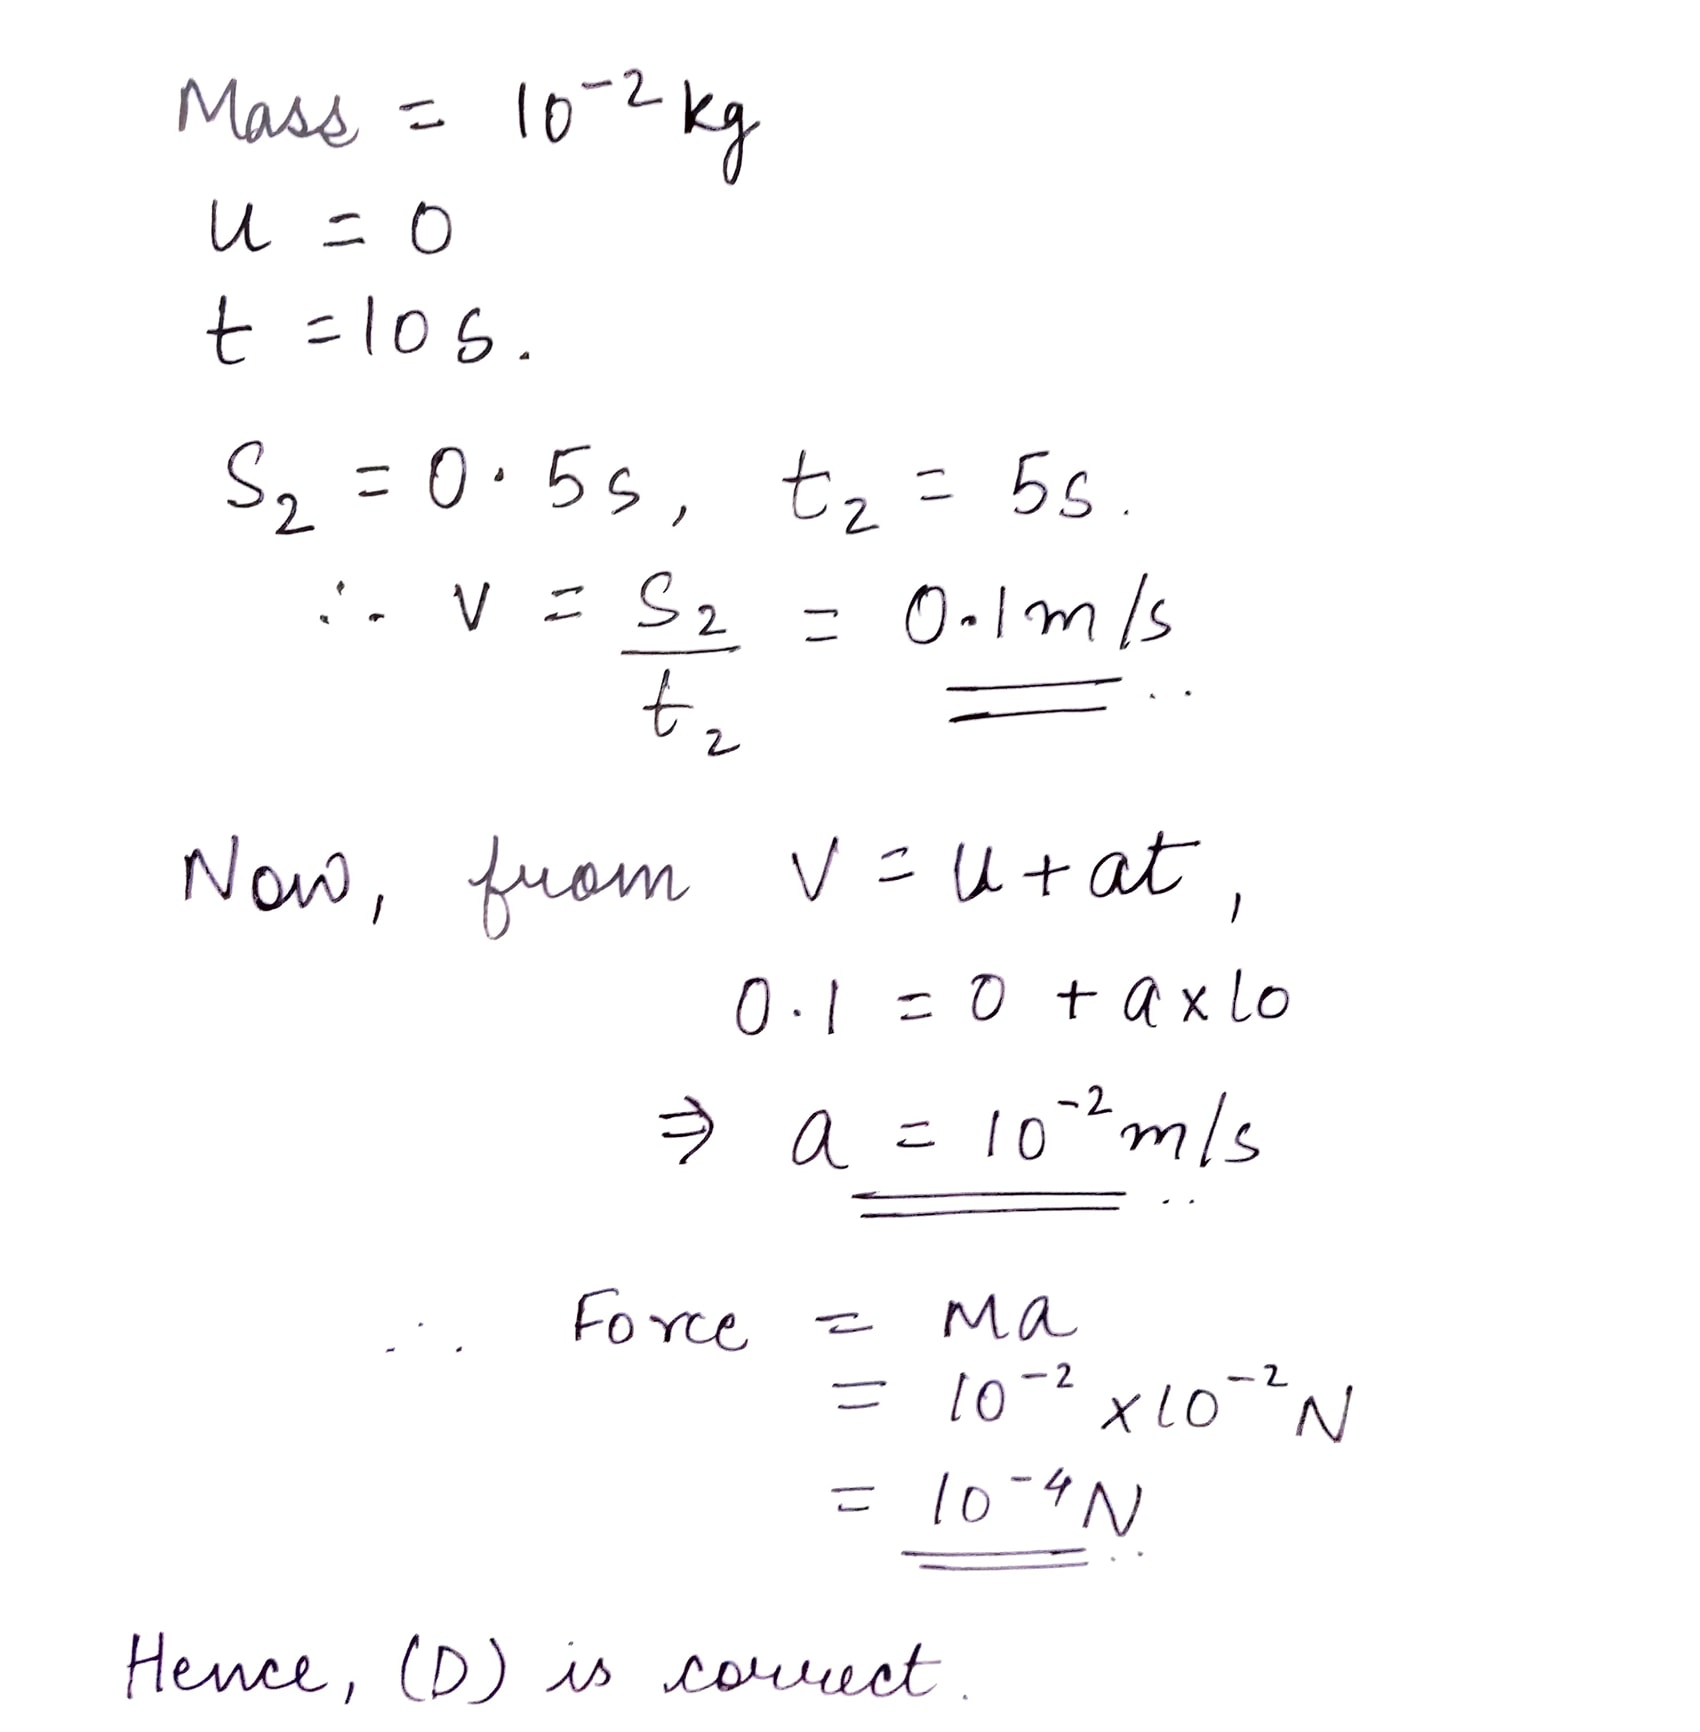 Mass = 10⁻² kg
u = 0
t = 10 s.
S₂ = 0.5s, t₂ = 5s.
∴ v = S₂/t₂ = 0.1 m/s
Now, from v = u + at,
0.1 = 0 + a x 10
⇒ a = 10⁻² m/s
∴ Force = Ma
= 10⁻² x 10⁻² N
= 10⁻⁴ N
Hence, (D) is correct.